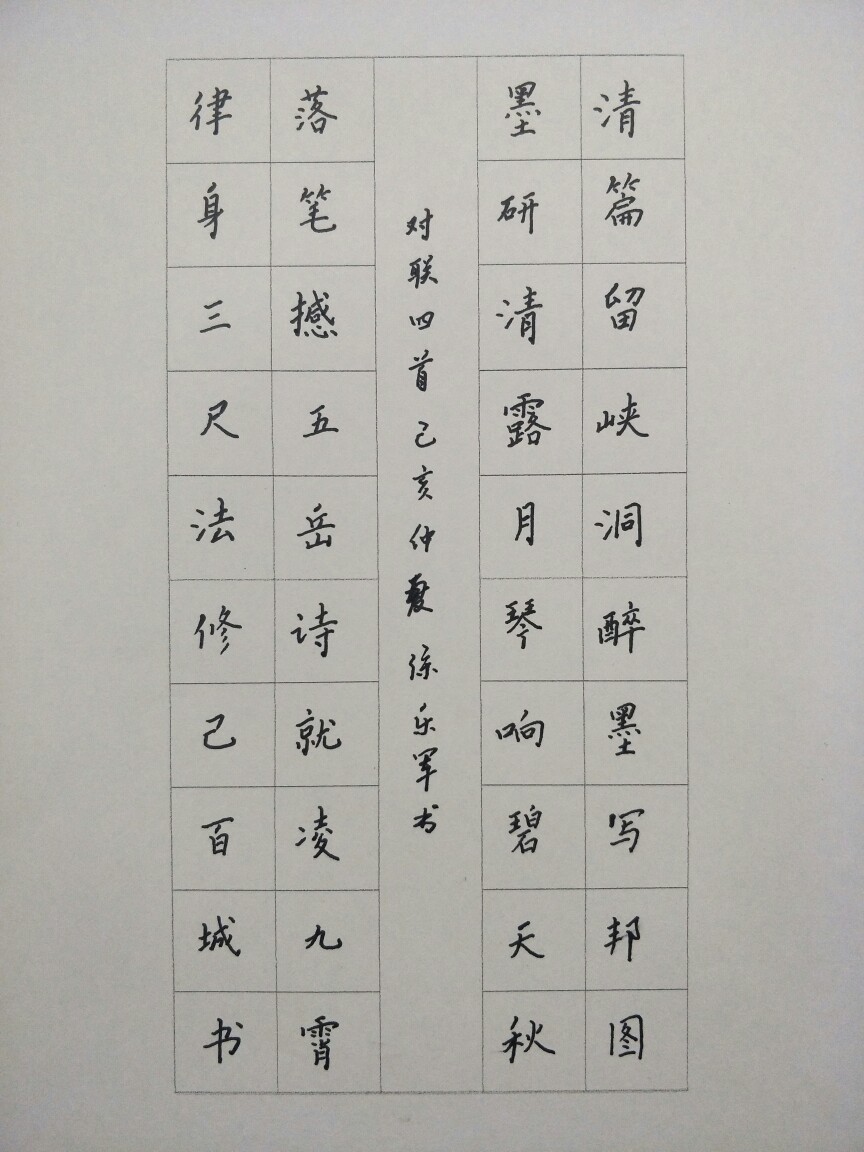 清篇留峡洞醉墨写邦图
墨研清露月琴响碧天秋
对联四首己亥仲夏徐乐军书
落笔撼五岳诗就凌九霄
律身三尺法修己百城书